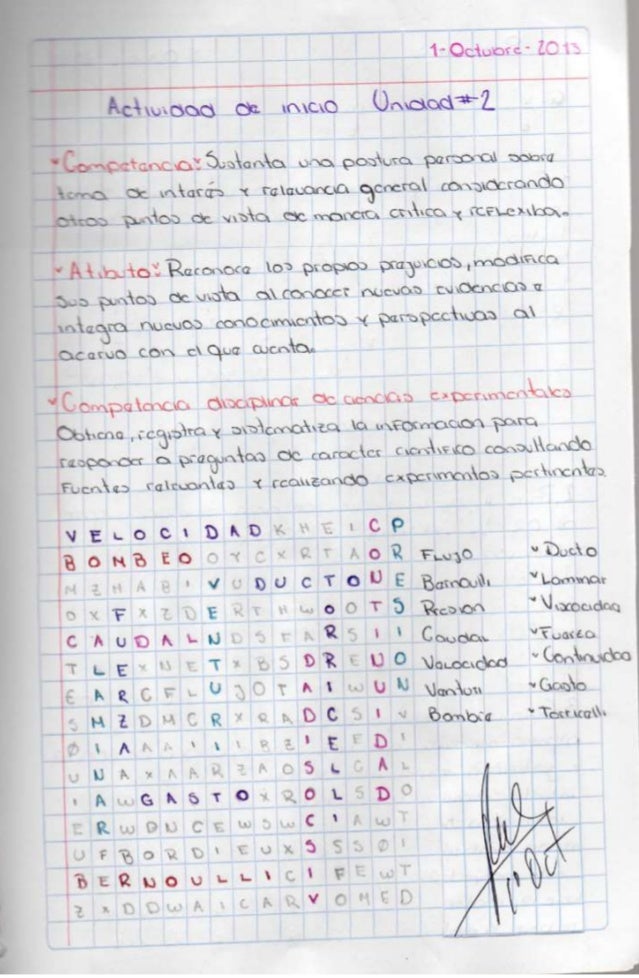 1-Octubre-2013
Actividad de inicio Unidad#2
Competencia: Sustenta una postura personal sobre
tema de interés y relevancia general considerando
otros puntos de vista de manera critica y reflexiba.
Atibuto: Reconoce los propios prejuicios, modifica
sus puntos de vista al conocer nuevas evidencias e
integra nuevos conocimientos y perspectivas al
acervo con el que cuenta.
Competencia disciplinar de ciencias experimentales
Obtiene, registra y sistematiza la informacion para
responder a preguntas de caracter cientifico consultando
Fuentes relevantes y realizando experimentos pertinentes.
V E L O C I D A D K H E I C P
B O M B E O O Y C X R T A O R Flujo Ducto
M Z H A B I V U D U C T O N E Bernoulli Laminar
O X F X Z D E R T H W O O T S Presion Viscocidad
C A U D A L N D S F A R S I I Caudal Fuerza
T L E X N E T X B S D R E N O Velocidad Continuidad
E A R C F L U J O T A I W U N Venturi Gasto
S M Z D M C R X R A D C S I V Bombeo Torricelli
O I A A A I I I B Z I E E D I
U N A X A A R Z A O S L C A L
I A W G A S T O X R O L S D O
E R W D N C E W S W C I A W T
U F B O R D I E U X S S S O I
B E R N O U L L I C I F E W T
Z X D D W A I C A R V O M E D